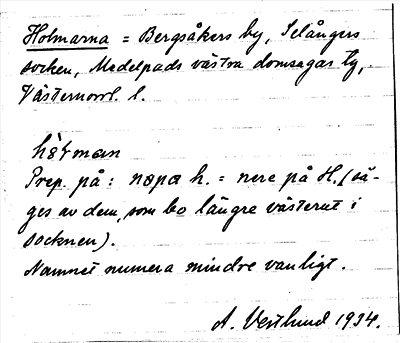 Holmarna = Bergsåkers by, Selångers
socken, Medelpads västra domsagas tg,
Västernorrl. l.
Prep. på: nopa h. = nere på H. (sä-
ges av dem, som bo längre västerut i
socknen).
Namnet numera mindre vanligt.
A. Vestlund 1934.